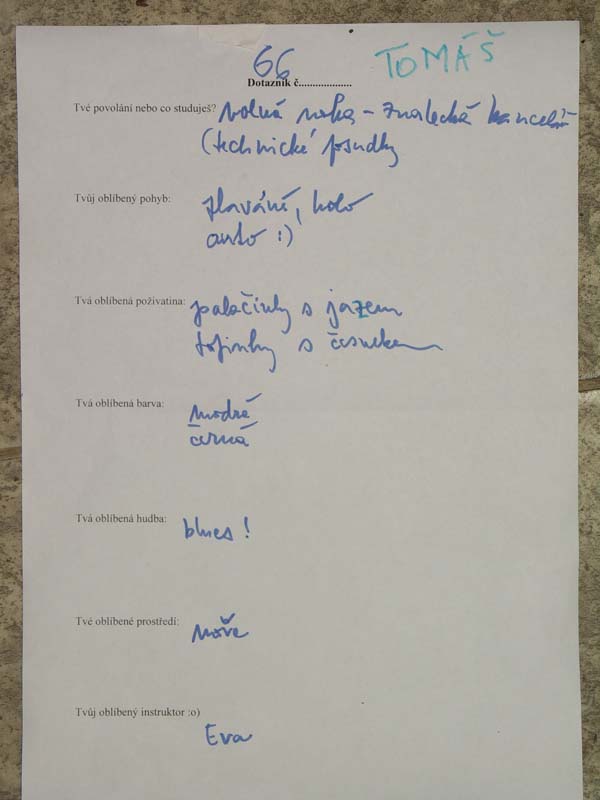 66 TOMÁŠ
Dotazník č...................
Tvé povolání nebo co studuješ? volná noha - znalecká kancelář
(technické posudky
Tvůj oblíbený pohyb: plavání, kolo
auto :)
Tvá oblíbená poživatina: palačinky s jazem
topinky s česnekem
Tvá oblíbená barva: modrá
černá
Tvá oblíbená hudba: blues!
Tvé oblíbené prostředí: moře
Tvůj oblíbený instruktor :o)
Eva